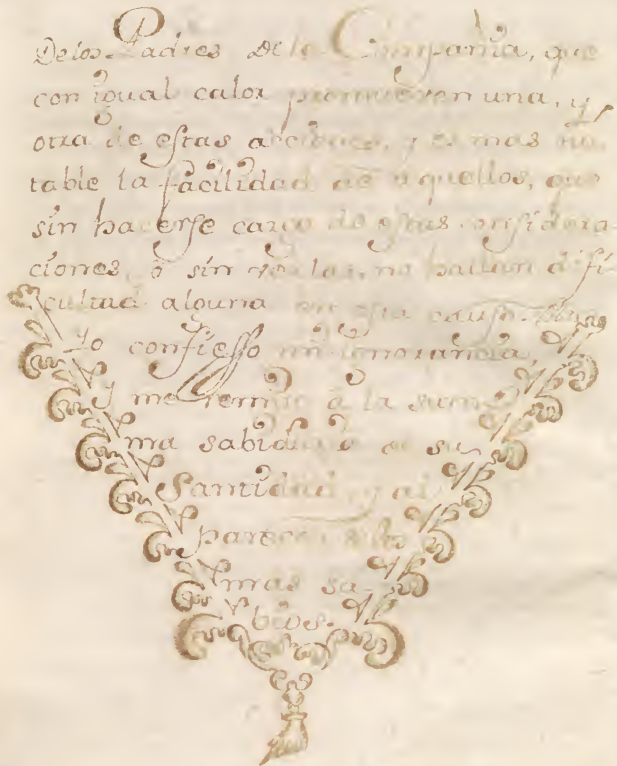 De los Padres de la Compañia, que
con igual calor promueven una, y
otra de estas acciones, y es mas no
table la facilidad de aquellos, que
sin hacerse cargo de estas considera
ciones, ò sin verlas, no hallan difi
cultad alguna en esta causa.
Yo confiesso mi ignorancia,
y me remito à la sum
ma sabiduria de su
Santidad, y al
parecer de los
mas sa
bios.